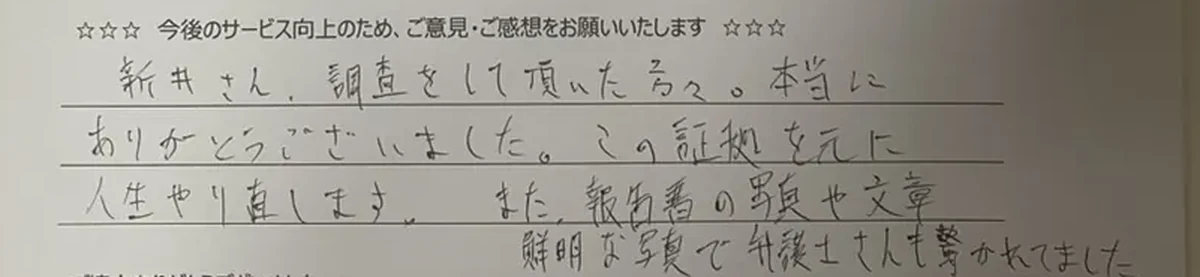 ☆☆☆ 今後のサービス向上のため、ご意見・ご感想をお願いいたします ☆☆☆
新井さん、調査をして頂いた方々。本当に
ありがとうございました。この証拠を元に
人生やり直します。 また、報告書の写真や文章
鮮明な写真で弁護士さんも驚かれてました